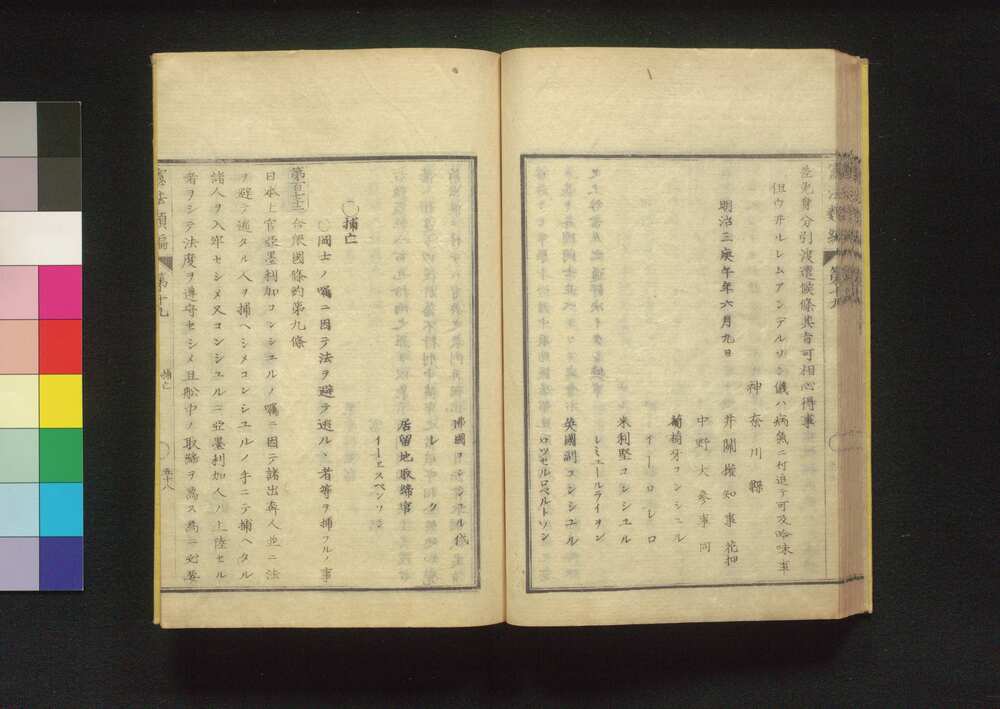 差免身分引渡遣候條其旨可相心得事
但ウ井ルレムアンデルソン儀ハ病氣ニ付追テ可及吟味事
明治三庚午年六月九日
神奈川縣
井關權知事 花押
中野大參事 同
葡萄牙コンシユル
イーロレロ
米利堅コンシユル
レミエールライヲン
英國副コンシユル
ロツセルロベルトソン
佛國コンシユル代
居留地取締官
イーエスベンソン
○捕亡
○同士ノ囑ニ因テ法ヲ避テ逃ルヽ者等ヲ捕フルノ事
第百七十二 合衆國條約第九條
日本上官亞墨利加コンシユルノ囑ニ因テ諸出奔人並ニ法
ヲ避テ逃タル人ヲ捕ヘシメコンシユルノ手ニテ捕ヘタル
諸人ヲ入牢セシメ又コンシユルニ亞墨利加人ノ上陸セル
者ヲシテ法度ヲ遵守セシメ且船中ノ取締ヲ爲ス爲ニ必要
憲法類編 第十九
捕亡